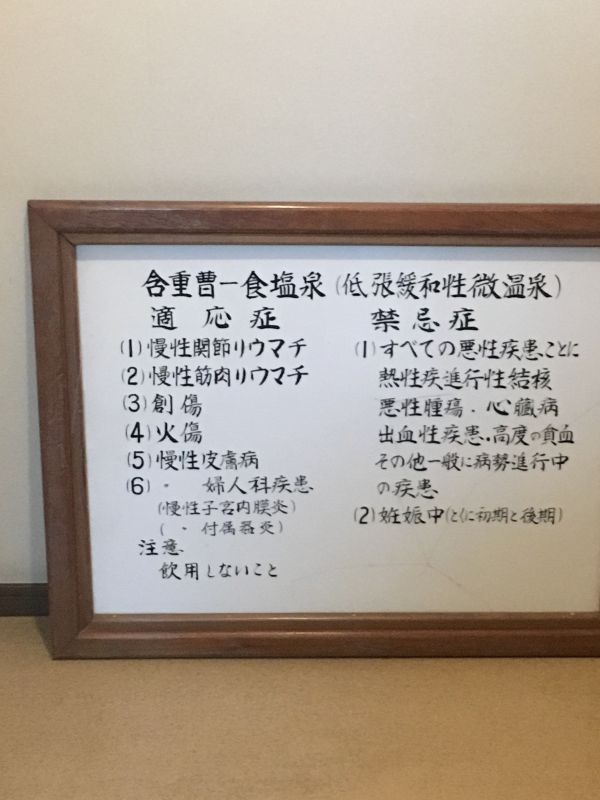 含重曹一食塩泉(低張緩和性微温泉)
適応症
(1)慢性関節リウマチ
(2)慢性筋肉リウマチ
(3)創傷
(4)火傷
(5)慢性皮膚病
(6)〃 婦人科疾患
(慢性子宮内膜炎)
(〃 付属器炎)
注意
飲用しないこと
禁忌症
(1)すべての悪性疾患、ことに
熱性疾進行性結核
悪性腫瘍・心臓病
出血性疾患・高度の貧血
その他一般に病勢進行中
の疾患
(2)妊娠中(とくに初期と後期)